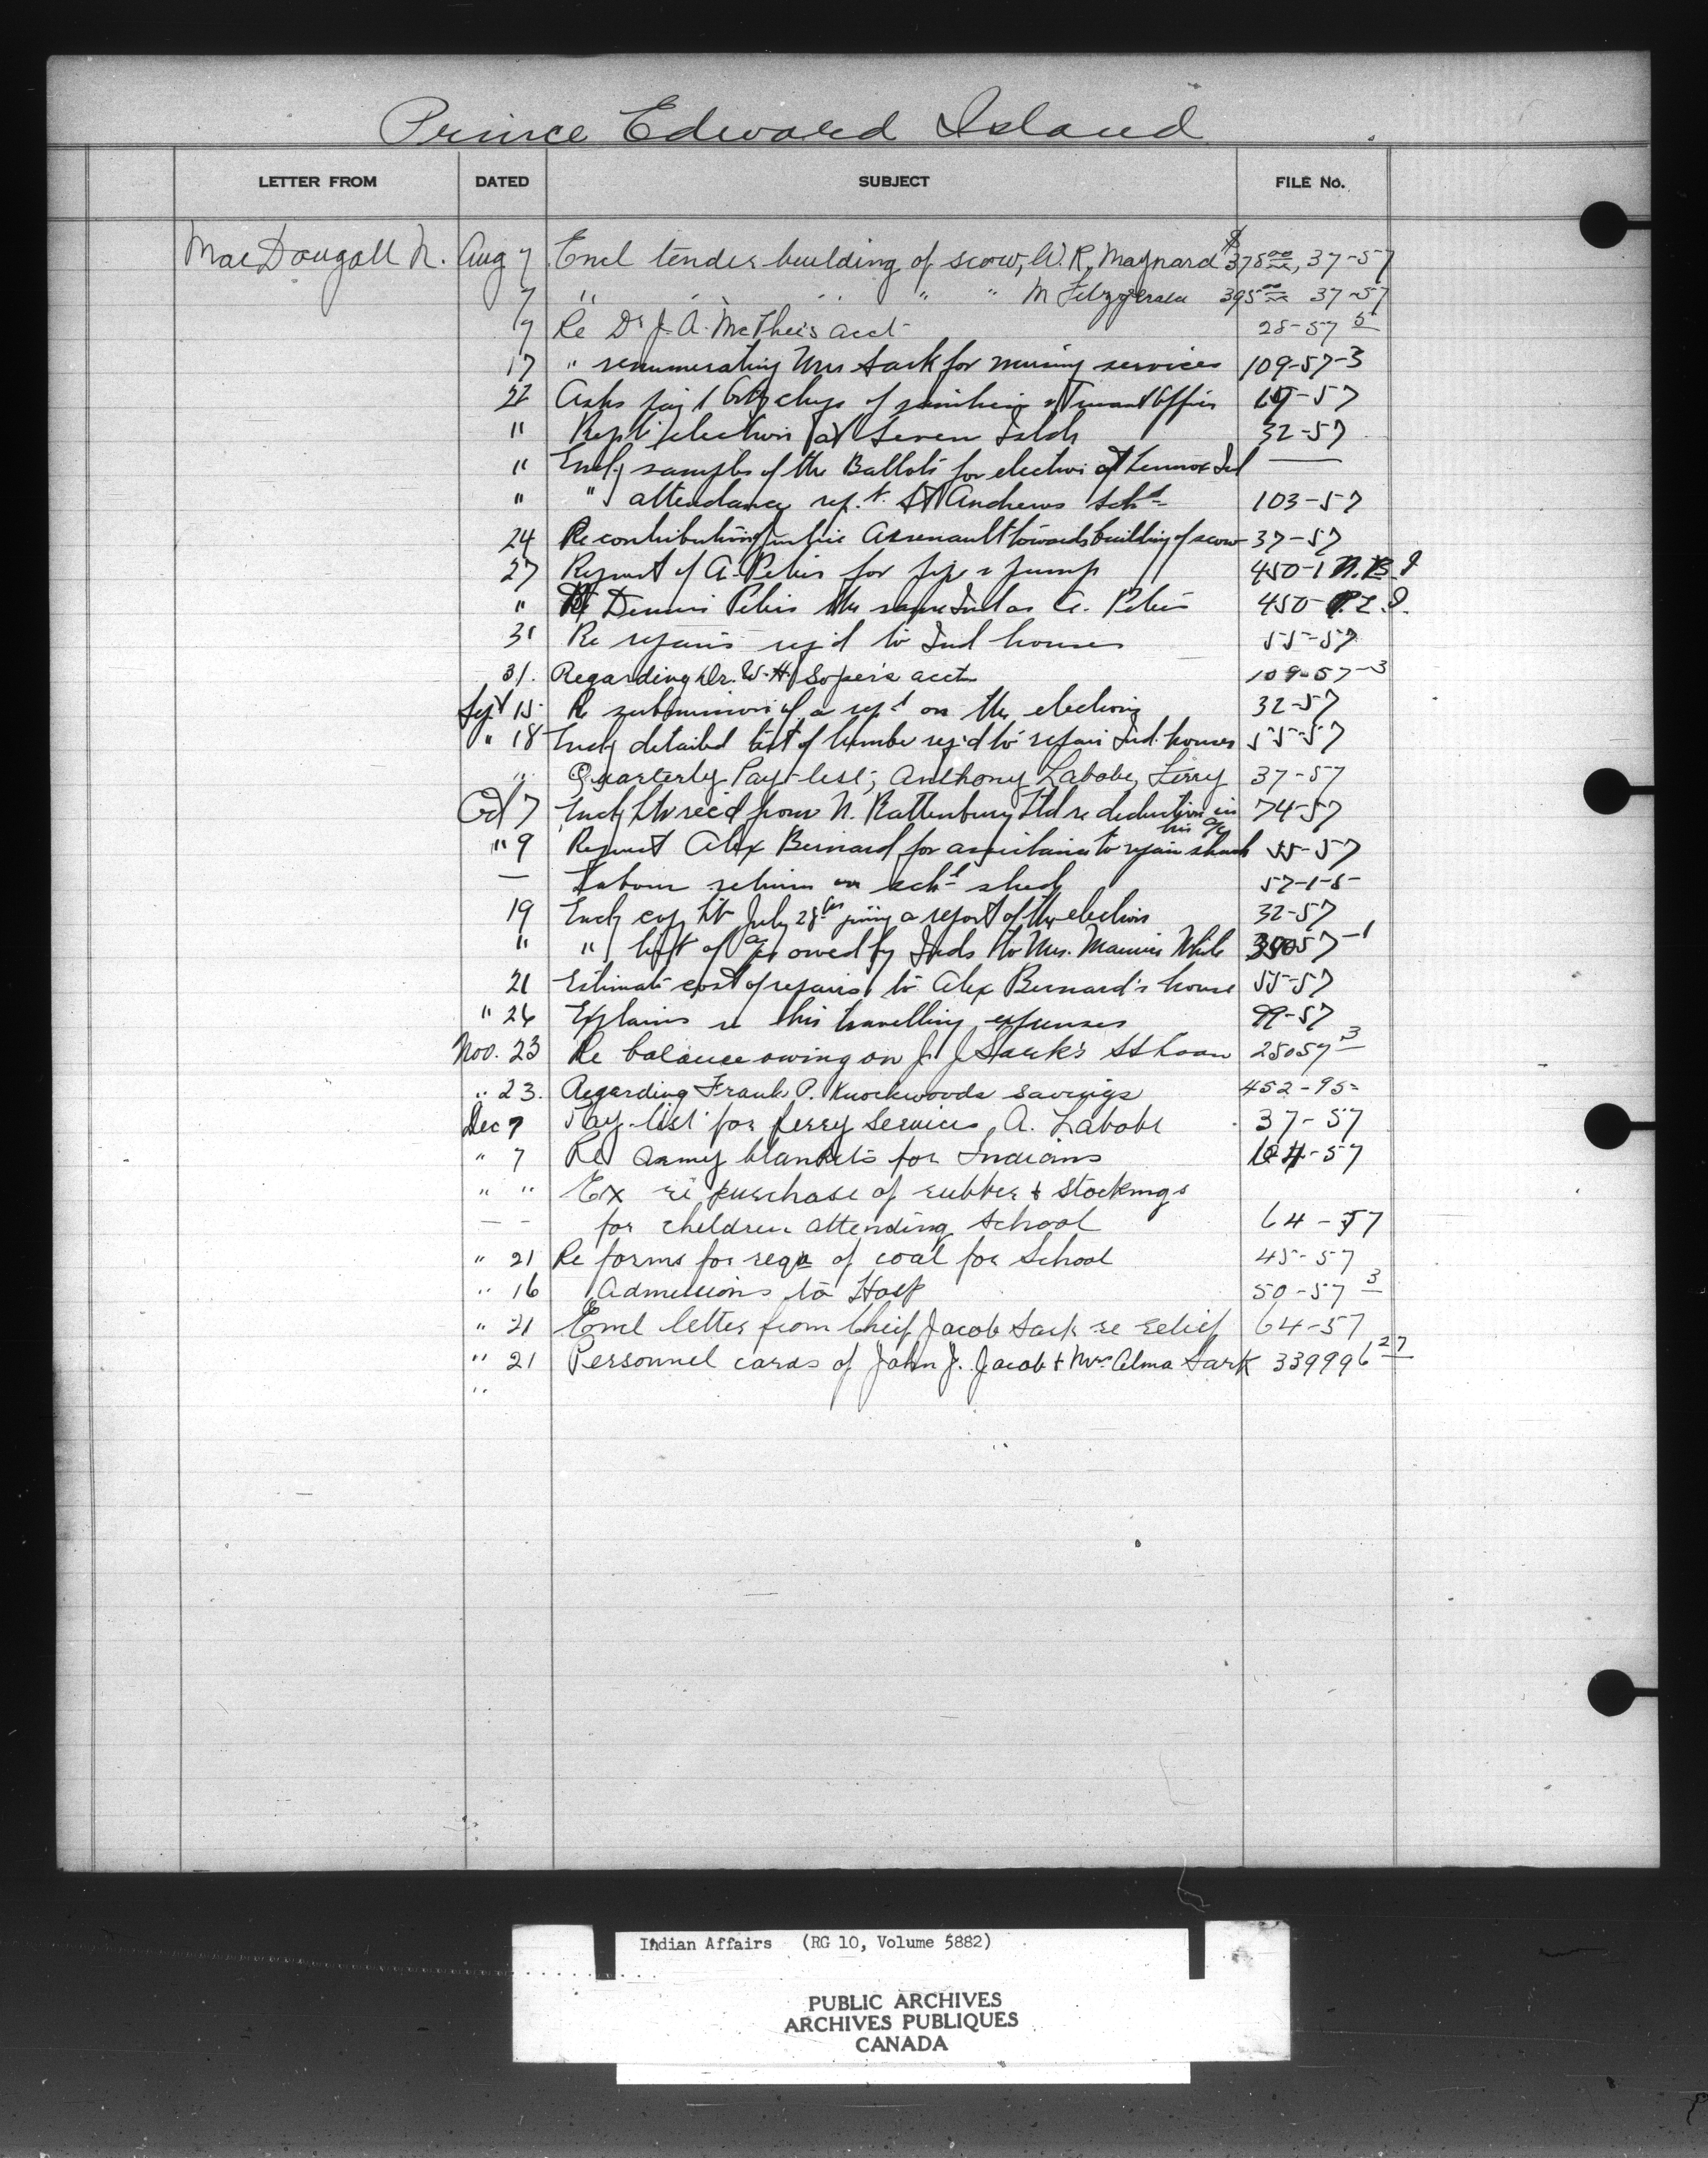 Prince Edward Island
LETTER FROM DATED SUBJECT FILE No.
MacDougall N. Aug 7 Encl tender building of scow, W. R. Maynard $375.00, 37-57
7 " " " " " M Fitzgerald 395.00 37-57
17 Re Dr J. A. McPhee's acct 28-57 5
17 " renumerating Mrs Sark for nursing services 109-57-3
22 Asks of Truant Officer -57
" Rept election at Seven 32-57
" Encl samples of the Ballots for election at Lennox Isd —
" " attendance rept. St Andrews Schl 103-57
24 Re contribution Arsenault towards building of scow 37-57
27 Request of A. Peters for pipe & pump 450-1 N.B.
" Re Dennis Peters the same Ind as A. Peters 450-
31 Re repairs req'd to Ind houses 55-57
31. Regarding Dr. W. H. Soper's acct 109-57-3
Sept 15 Re submission of a rept on the elections 32-57
" 18 Encl detailed list of lumber req'd to repair Ind. houses 55-57
" Quarterly Pay-list; Anthony Labobe, Ferry 37-57
Oct 7 Encl ltr rec'd from N. Rattenbury Ltd re deduction in his a/c 74-57
" 9 Request Alex Bernard for assistance to repair shack 55-57
— Labour return on schl shed 57-1-5
19 Encl copy ltr July 28th giving a report of the election 32-57
" " list of a/c owed by Inds to Mrs. White 57-1
21 Estimate cost of repairs to Alex Bernard's house 55-57
" 26 Explains re his travelling expenses 99-57
Nov. 23 Re balance owing on J. J. Sark's SS Loan 25057 3
" 23. Regarding Frank P. Knockwoods savings 452-95
Dec 7 Pay-list for ferry services, A. Labobe 37-57
" 7 Re Army blankets for Indians 104-57
" " Ex re purchase of rubber & stockings
— — for children attending school 64-57
" 21 Re forms for reqn of coal for School 45-57
" 16 Admissions to Hosp 50-57 3
" 21 Encl letter from Chief Jacob Sark re relief 64-57
" 21 Personnel cards of John J. Jacob & Mrs Alma Sark 339996 27
"
Indian Affairs (RG 10, Volume 5882)
PUBLIC ARCHIVES
ARCHIVES PUBLIQUES
CANADA